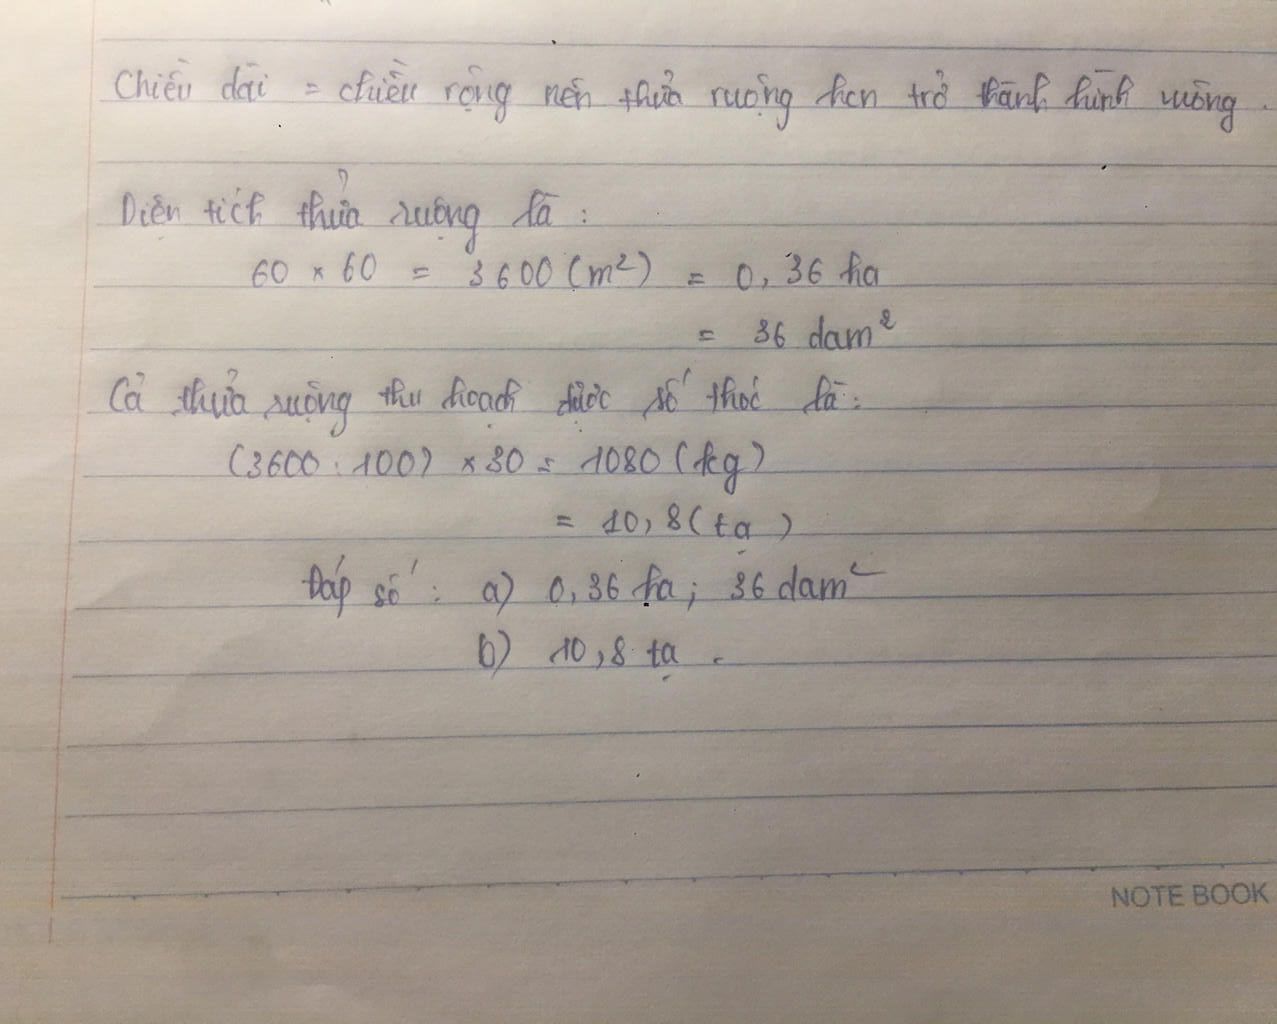 Chiều dài = chiều rộng nên thửa ruộng hcn trở thành hình vuông.
Diện tích thửa ruộng là :
60 × 60 = 3600 (m²) = 0,36 ha
= 36 dam²
Cả thửa ruộng thu hoạch được số thóc là :
(3600 : 100) × 30 = 1080 (kg)
= 10,8 (tạ)
Đáp số : a) 0,36 ha ; 36 dam²
b) 10,8 tạ .
NOTE BOOK